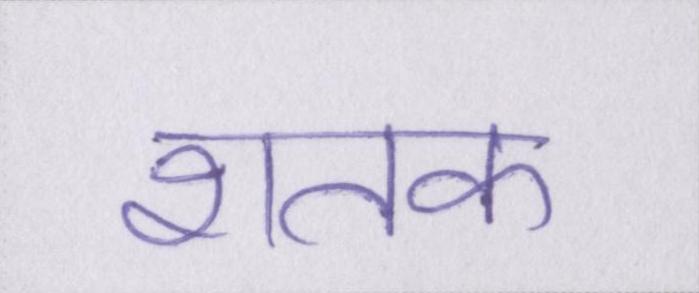 शतक